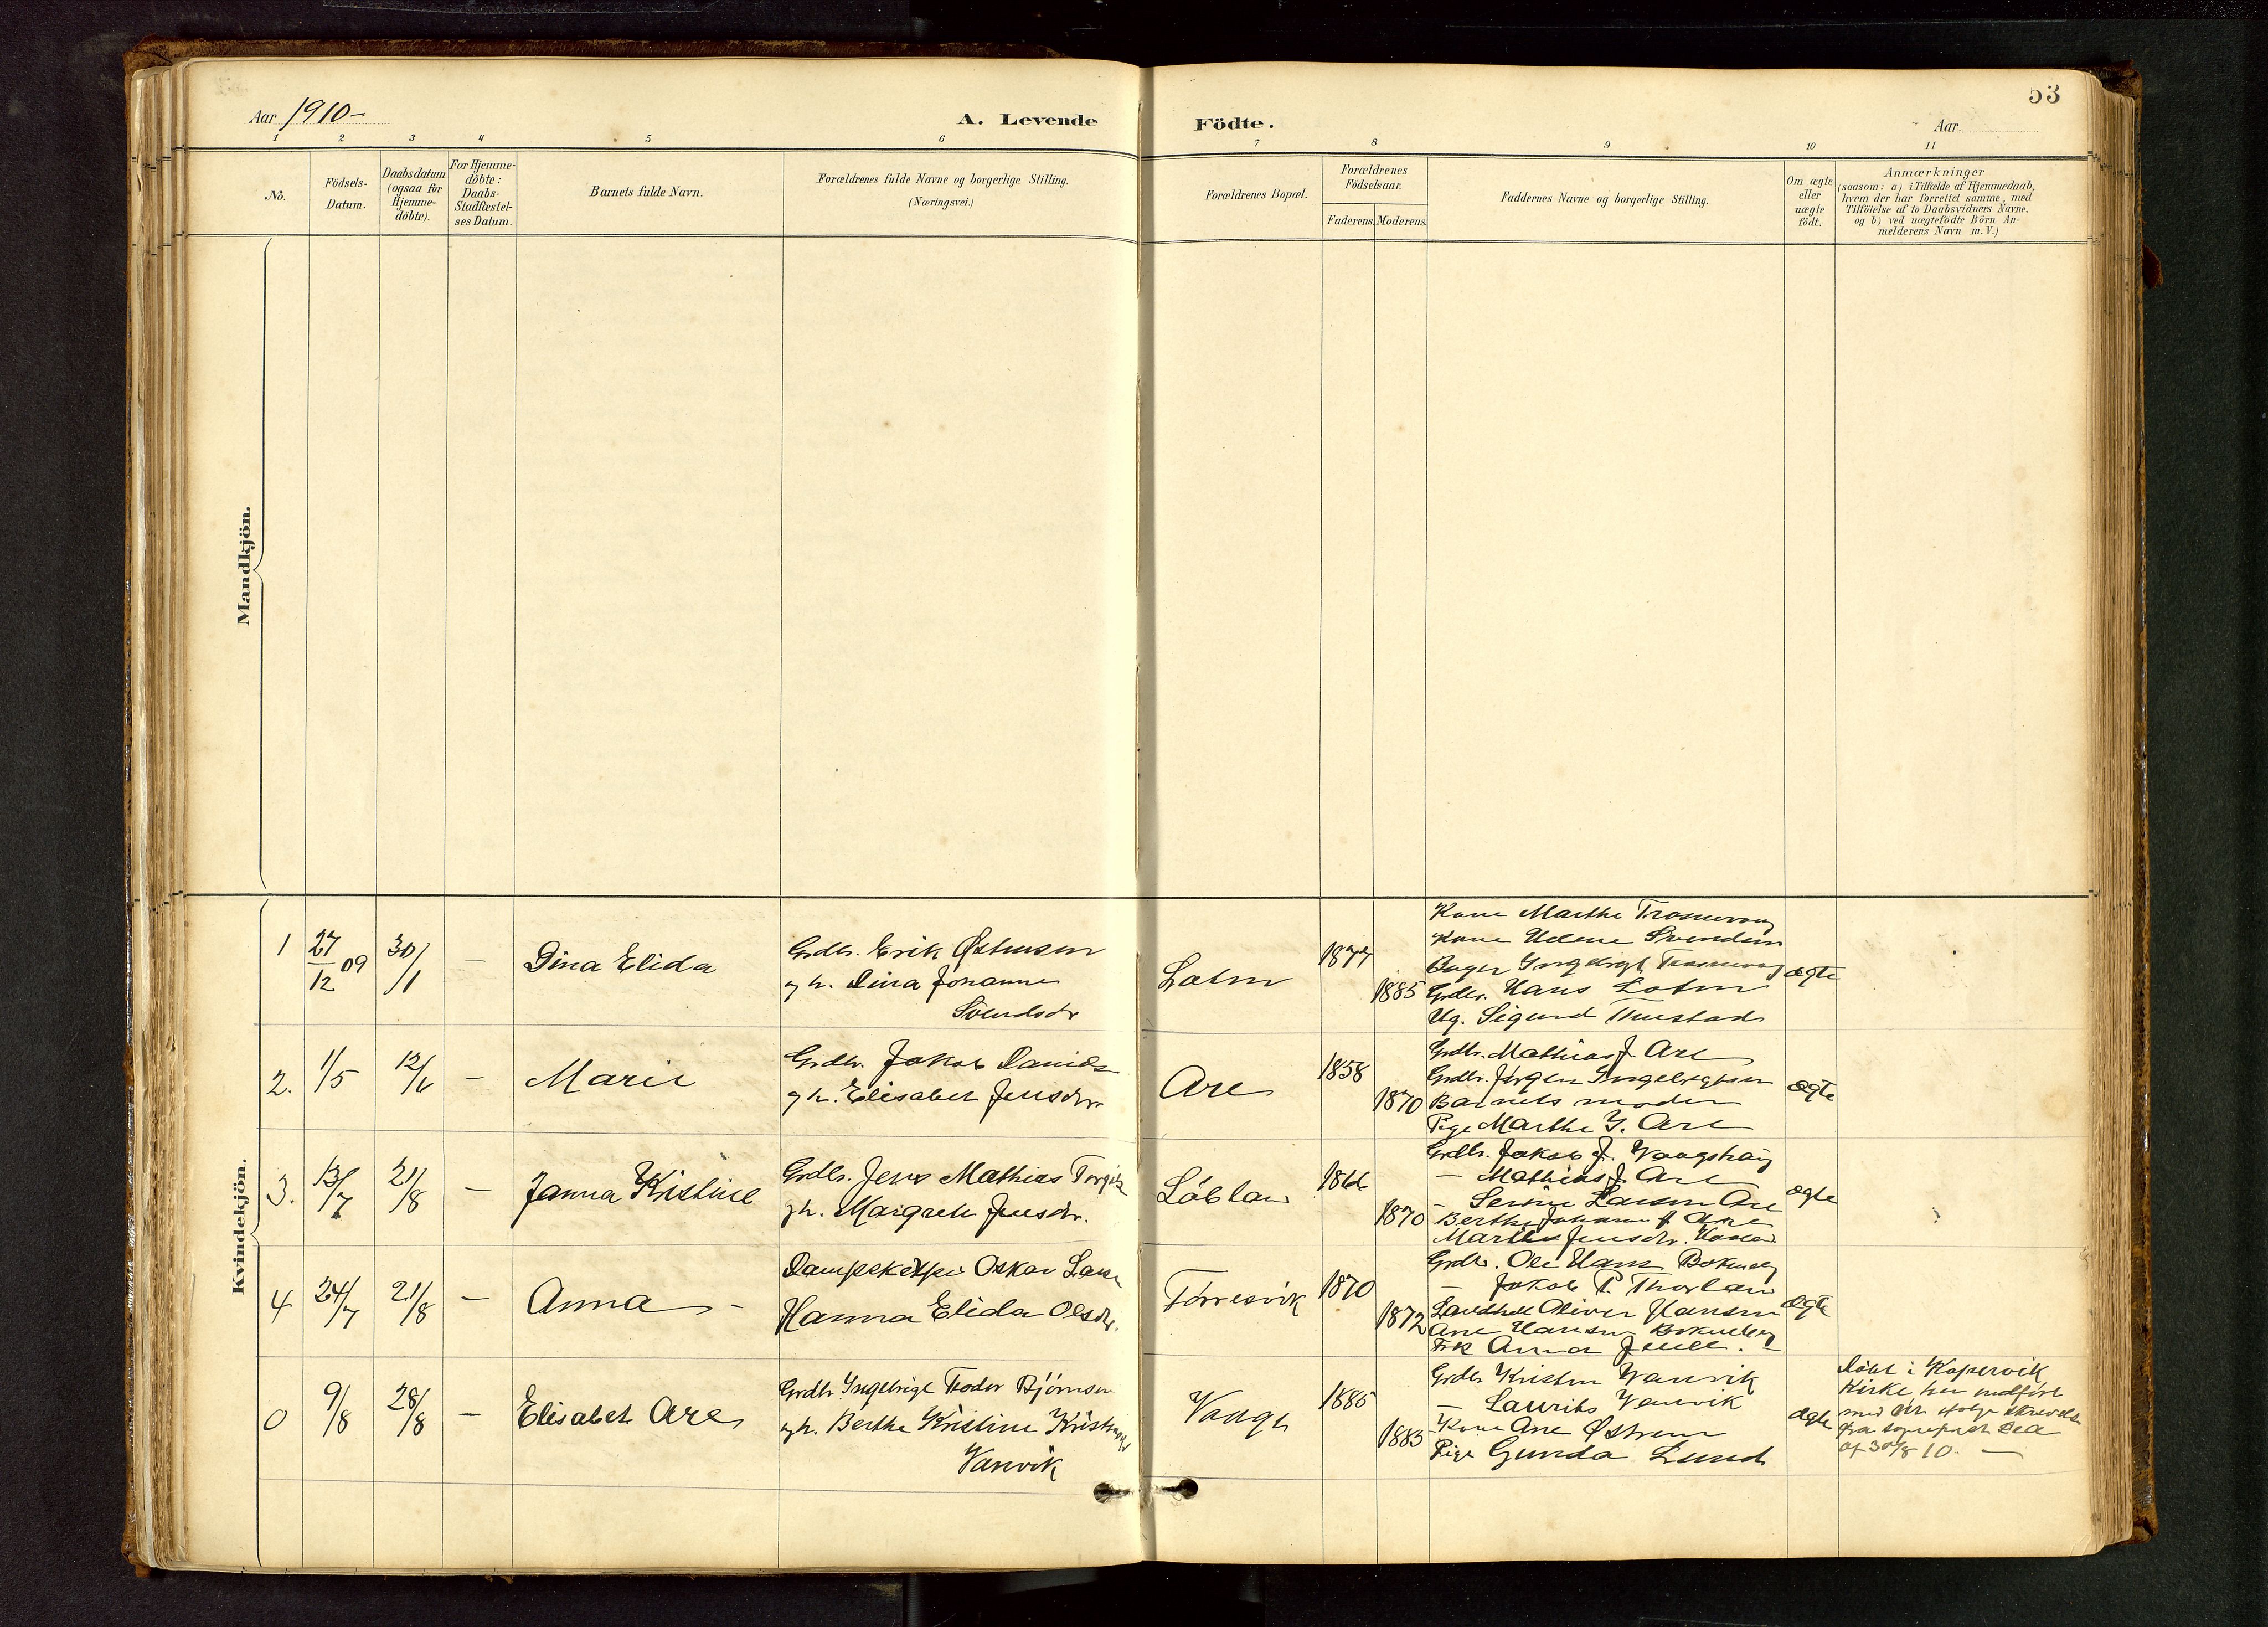 53
Aar 1910-
A. Levende Födte.
Aar
1 2 3 4 5 6 7 8 9 10 11
No.
Födsels-
Datum.
Daabsdatum
(ogsaa for
Hjemme-
döbte).
For Hjemme-
döbte:
Daabs-
Stadfæstel-
ses Datum.
Barnets fulde Navn.
Forældrenes fulde Navne og borgerlige Stilling.
(Næringsvei.)
Forældrenes Bopæl.
Forældrenes
Födselsaar.
Faderens. Moderens.
Faddernes Navne og borgerlige Stilling.
Om ægte
eller
uægte
födt.
Anmærkninger
(saasom: a) i Tilfælde af Hjemmedaab,
hvem der har forrettet samme, med
Tilföielse af to Daabsvidners Navne.
og b) ved uægtefödte Börn An-
melderens Navn m. V.)
Mandkjön.
Kvindekjön.
1 27/12 09 30/1 — Dina Elida
Grdbr. Erik Østensen
g h. Dina Johanne
Svendsdr
1877
1885
Kone Marthe
Kone Helene Svendsen
Grdbr. Hans
Ug. Sigurd
ægte
2. 1/5 12/6 — Marie
Grdbr. Jakob Davids
g h. Elisabet Jensdr.
Are
1858
1870
Grdbr. Mathias J. Are
Grdbr. Jørgen Ingebrigtsen
Barnets moder
Pige Marthe J. Are
ægte
3. 13/7 21/8 — Janna Kristine
Grdbr. Jens Mathias
g h. Margrete Jensdr.
1866
1870
Grdbr. Jakob J.
— Mathias J. Are
— Larsen Are
Berthe Johanne J. Are
Marthe Jensdr.
ægte
4 24/7 21/8 — Anna —
Oskar Larsen
Hanna Elida Olsdr.
Tørresvik
1870
1872
Grdbr. Ole Hans
— Jakob P.
Oliver Hansen
Ane Hansen
Frk Anna Juell.
ægte
0 9/8 28/8 — Elisabet Are
Grdbr Ingebrigt Teodor Bjørnsen
g h. Berthe Kristine
Vanvik
Vaage
1885
1883
Grdbr Kristen Vanvik
— Laurits Vanvik
Kone Ane Østrem
Pige Gunda Lund
ægte
Døbt i Kopervik
Kirke, her indført
af 30/8 10. —